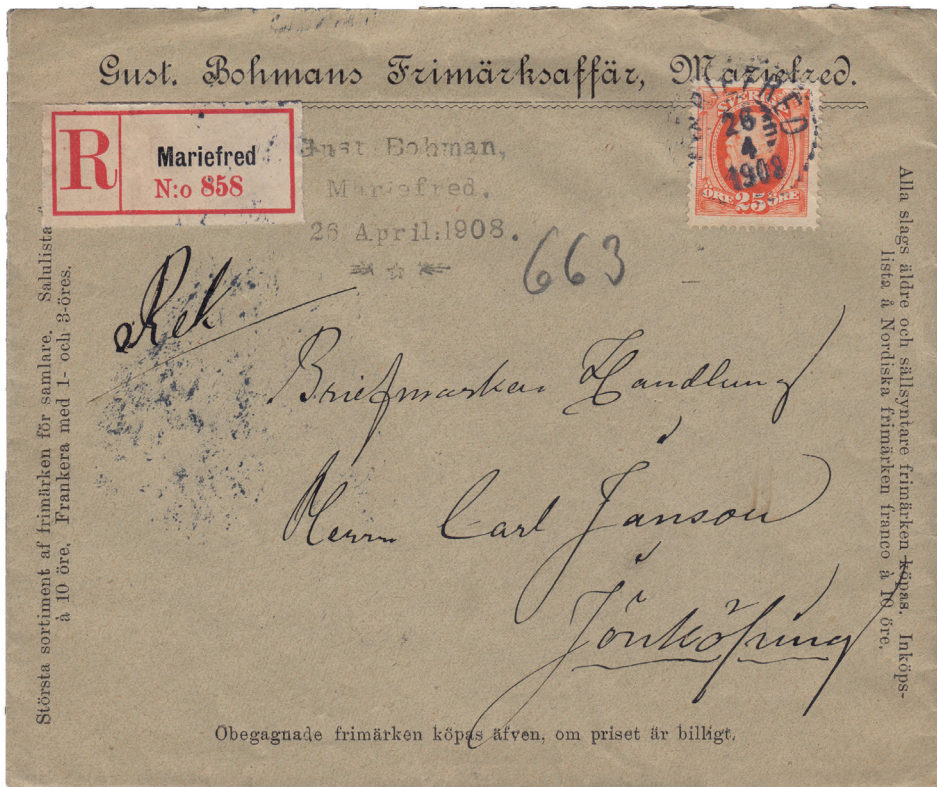 Gust. Bohmans Frimärksaffär, Mariefred.
R
Mariefred
N:o 858
Gust Bohman,
Mariefred.
26 April.1908.
MARIEFRED
26
4
1908
SVERIGE
ÖRE 25 ÖRE
663
Rek
Briefmarken Handlung
Herrn Carl Janson
Jönköping
Största sortiment af frimärken för samlare. Salulista
à 10 öre. Frankera med 1- och 3-öres.
Alla slags äldre och sällsyntare frimärken köpas. Inköps-
lista å Nordiska frimärken franco à 10 öre.
Obegagnade frimärken köpas äfven, om priset är billigt.